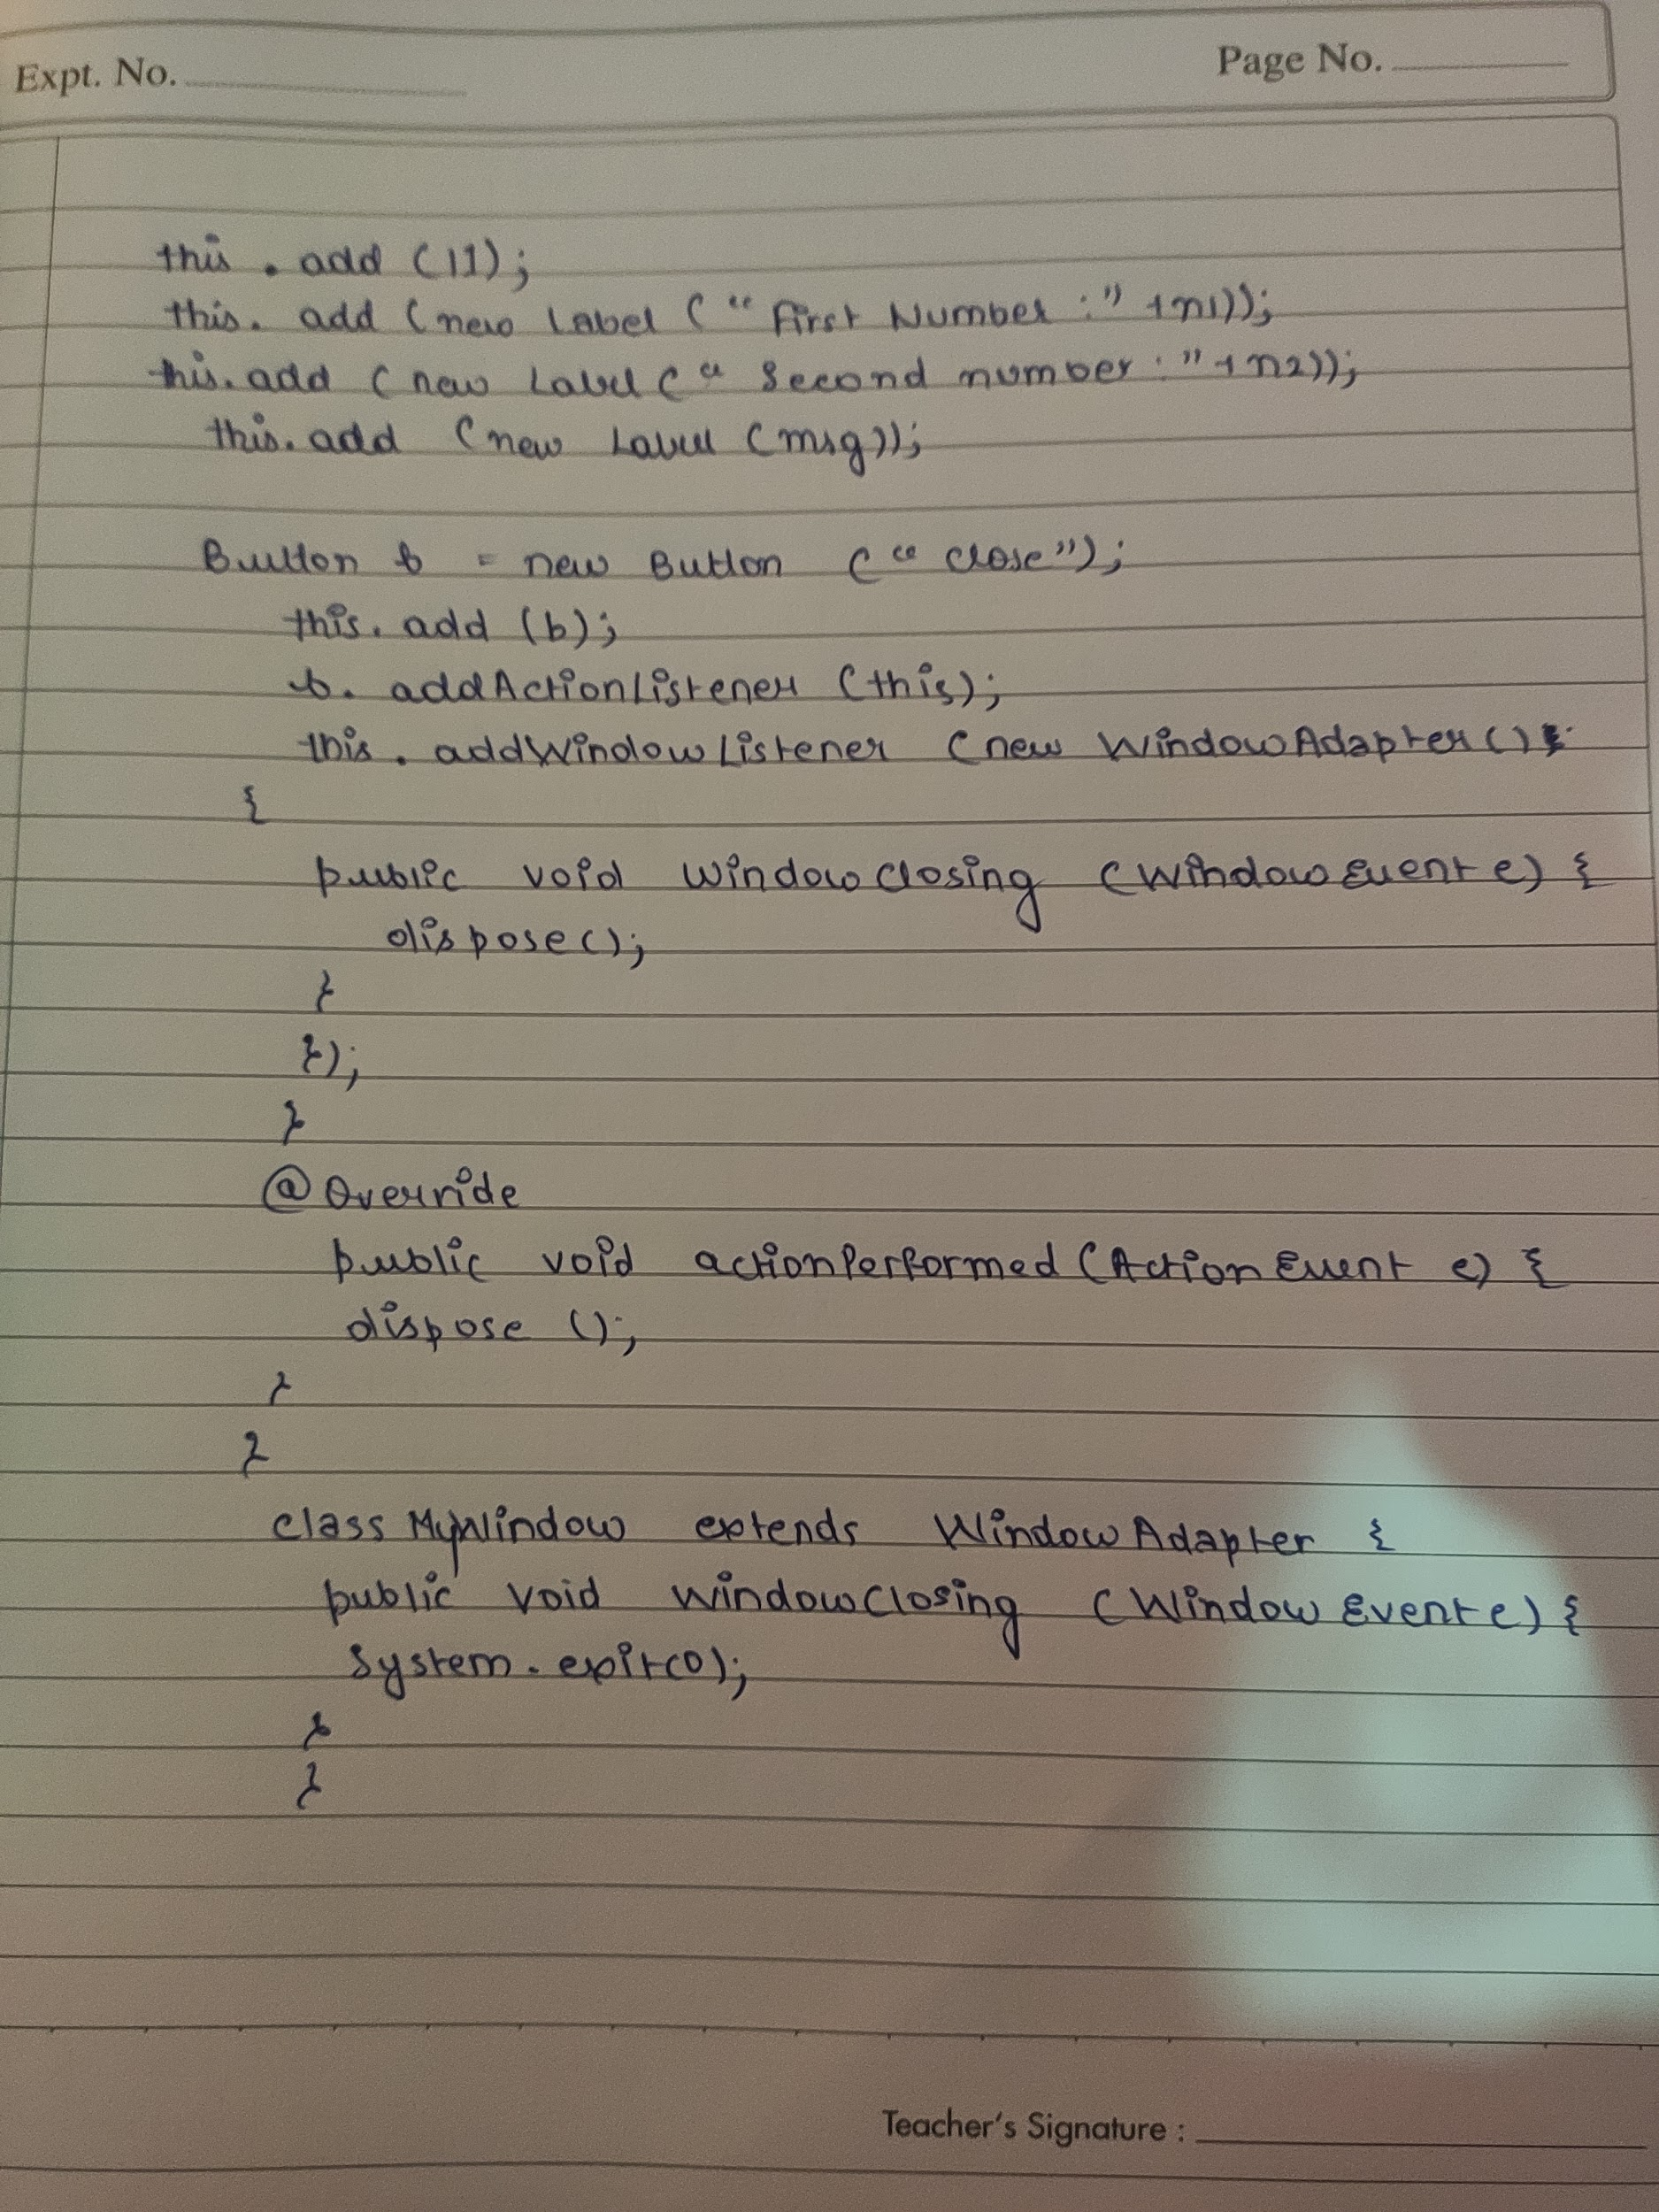 Expt. No.
Page No.
this . add (l1);
this. add (new Label ( " First Number : " +n1));
this.add ( new Label ( " Second number : " +n2));
this.add (new Label (msg));
Button b = new Button ( " close");
this. add (b);
b. addActionListener (this);
this . addWindowListener (new WindowAdapter()
{
public void windowClosing (WindowEvent e) {
dispose();
}
});
}
@Override
public void actionPerformed (ActionEvent e) {
dispose ();
}
}
class MyWindow extends WindowAdapter {
public void windowClosing (WindowEvent e) {
System.exit(0);
}
}
Teacher's Signature :